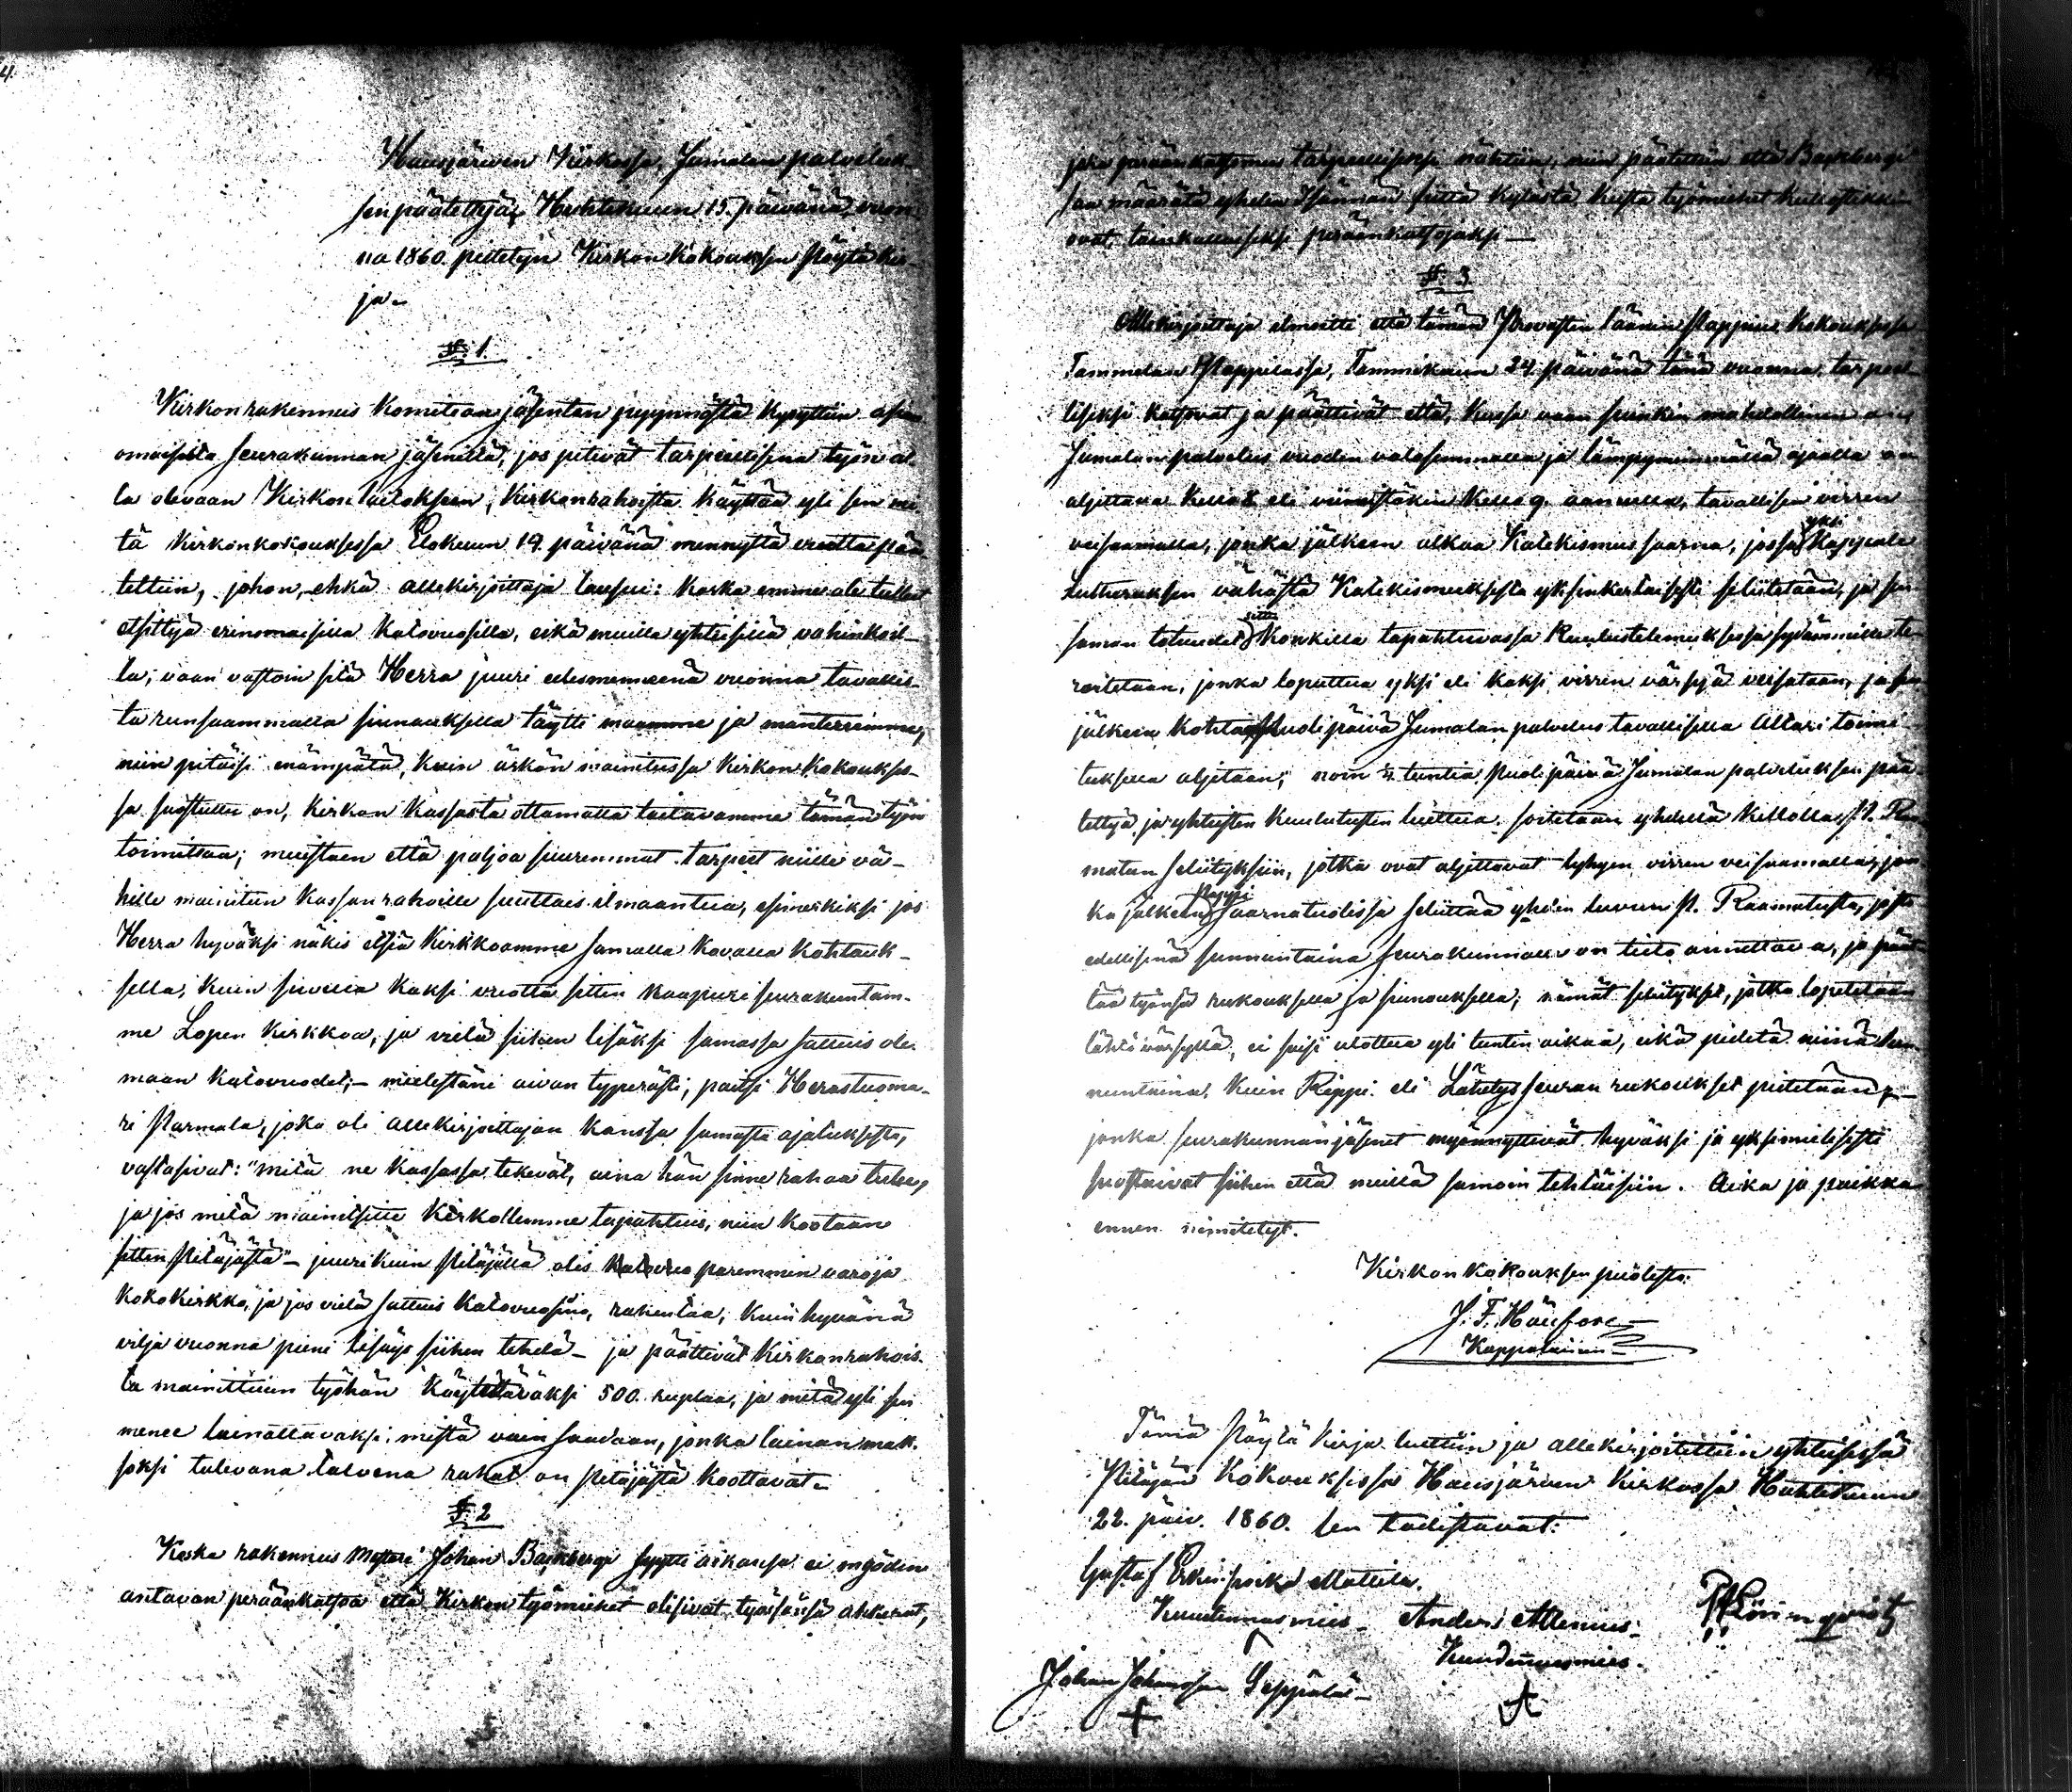 4.
Hausjärwen Kirkossa, Jumalan palveluk-
sen päätettyä, Huhtikuun 15. päivänä, vuon-
na 1860. pidetyn Kirkon Kokouksen Pöytäkir-
ja.
§. 1.
Kirkonrakennus Komitean jäsenten pyynnöstä kysyttiin asian
omaisilta seurakunnan jäseniltä, jos pitivät tarpeellisena työn al-
la olevaan Kirkon laitoksen, Kirkonrahoista käyttää yli sen mi-
tä Kirkonkokouksessa Elokuun 19. päivänä mennyttä vuotta pää
tettiin, johon, ehkä allekirjoittaja lausui: koska emme ole tulleet
etsittyä erinomaisilla Katovuosilla, eikä muilla yhteisillä vahinkoil-
la, vaan vastoin sitä Herra juuri edesmenneenä vuonna tavallis-
ta runsaammalla siunauksella täytti maamme ja manterreemme,
niin pitäisi enämpätä, kuin äskön mainitussa Kirkon Kokoukses-
sa suostuttu on, Kirkon Kassasta ottamatta taitavamme tämän työn
toimittaa; muistaen että paljoa suuremmat tarpeet niille vä-
hille mainitun Kassan rahoille suuttais ilmaantua, esimerkiksi jos
Herra hyväksi näkis etsiä Kirkkoamme samalla kovalla kohtauk-
sella, kuin sivulla kaksi vuotta sitten naapuri seurakuntam-
me Lopen Kirkkoa, ja vielä siihen lisäksi samassa sattuis ole-
maan Katovuodet; - mielestäni aivan typerästi, paitsi Herastuoma-
ri Parmala, joka oli allekirjoittajan kanssa samasta ajatuksesta,
vastasivat: "mitä ne Kassassa tekevät, aina hän sinne rahaa tulee,
ja jos mitä mainitsitte Kirkollemme tapahtuis, niin kootaan
sitten Pitäjästä" - juuri kuin Pitäjällä olis katovuo paremmin varoja
koko kirkko, ja jos vielä sattuis katovuosina, rakentaa, kuin hyvänä
vilja vuonna pieni lisäys siihen tehdä - ja päättivät Kirkonrahois-
ta mainittuun työhön käytettäväksi 500. ruplaa, ja mitä yli sen
menee lainattavaksi, mistä vain saadaan, jonka lainan mak-
soksi tulevana talvena rahat on pitäjästä koottavat.
§. 2
Koska rakennus Mestari Johan Backberge syytti aikansa ei myöden
antavan peräänkatsoa että Kirkon työmiehet olisivat työssänsä ahkerat,
joka peräänkatsomus tarpeelliseksi nähtiin, niin päätettiin että Backberge
saa määrätä yhden Isännän siitä kylästä kusta työmiehet kulostikkin
ovat, tainkaltaiseksi peräänkatsojaksi —
§. 3
Allekirjoittaja ilmoitti että tämän Provastin läänin Pappein Kokouksessa
Tammelan Pappilassa, Tammikuun 24. päivänä tänä vuonna, tarpeel-
liseksi katsovat ja päättivät että, kussa vaan suinkin mahdollinen on,
Jumalan palvelus vuoden valosemmalla ja lämpymimmällä ajalla on
aljettava kello 8 eli viimeistäkin kello 9. aamulla, tavallisen virren
veisaamalla, jonka jälkeen alkaa Katekismus saarna, jossa yksi Kappale
Lutheruksen vähästä Katekismuksesta yksinkertaisesti selitetään, ja sen
saman totuudet sitte Konkilla tapahtuvassa Kuulustelemuksessa sydämmille te-
roitetaan, jonka loputtua yksi eli kaksi virren värsyä veisataan, ja sen
jälkein kohta Puolipäivä Jumalan palvelus tavallisella Altari toimi-
tuksella aljetaan; noin ½ tuntia Puolipäivä Jumalan palveluksen pää-
tettyä ja yhteisten kuulutusten luettua, soitetaan yhdellä kellolla P. Raa-
matun selityksiin, jotka ovat aljettavat lyhyen virren veisaamalla, jon-
ka jälkeen Pappi Saarnatuolissa selittää yhden luvun P. Raamatusta, josta
edellisenä sunnuntaina seurakunnalle on tieto annettava, ja päät-
tää työnsä rukouksella ja siunauksella; nämät selitykset, jotka lopetetaan
lähtö värsyllä, ei saisi ulottua yli tuntin aikaa, eikä pidetä niinä sun-
nuntaina, kuin Rippi- eli Lähetys seuran rukoukset pidetään, -
jonka seurakunnan jäsenet myönnyttivät hyväksi ja yksimielisesti
suostuivat siihen että meillä samoin tehtäisiin. Aika ja paikka
ennen nimitetyt.
Kirkon kokouksen puolesta:
J. F. Häufors
Kappalainen
Tämä Pöytä kirja luettiin ja allekirjoitettiin yhteisessä
Pitäjän Kokouksessa Hausjärven Kirkossa Huhtikuun
22. päiv. 1860. sen todistavat:
Gustaf Erkinpoika Mattila.
Kuudennusmies - Anders Allenius
Kuudennusmies.
Johan Johansson Seppälä